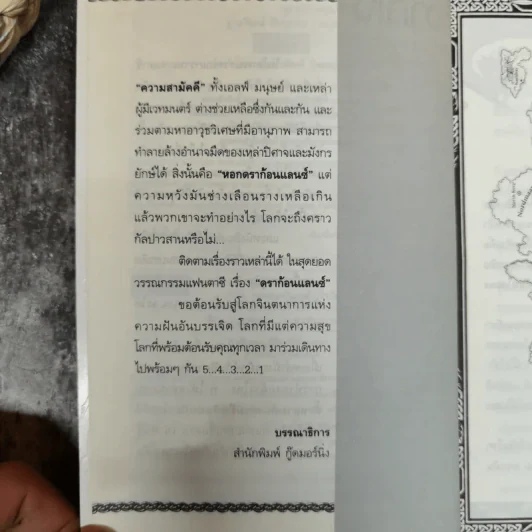 "ความสามัคคี" ทั้งเอลฟ์ มนุษย์ และเหล่า
ผู้มีเวทมนตร์ ต่างช่วยเหลือซึ่งกันและกัน และ
ร่วมตามหาอาวุธวิเศษที่มีอานุภาพ สามารถ
ทำลายล้างอำนาจมืดของเหล่าปีศาจและมังกร
ยักษ์ได้ สิ่งนั้นคือ "หอกดราก้อนแลนซ์" แต่
ความหวังมันช่างเลือนรางเหลือเกิน
แล้วพวกเขาจะทำอย่างไร โลกจะถึงคราว
กัลปาวสานหรือไม่...
ติดตามเรื่องราวเหล่านี้ได้ ในสุดยอด
วรรณกรรมแฟนตาซี เรื่อง "ดราก้อนแลนซ์"
ขอต้อนรับสู่โลกจินตนาการแห่ง
ความฝันอันบรรเจิด โลกที่มีแต่ความสุข
โลกที่พร้อมต้อนรับคุณทุกเวลา มาร่วมเดินทาง
ไปพร้อมๆ กัน 5...4...3...2...1
บรรณาธิการ
สำนักพิมพ์ กู๊ดมอร์นิ่ง